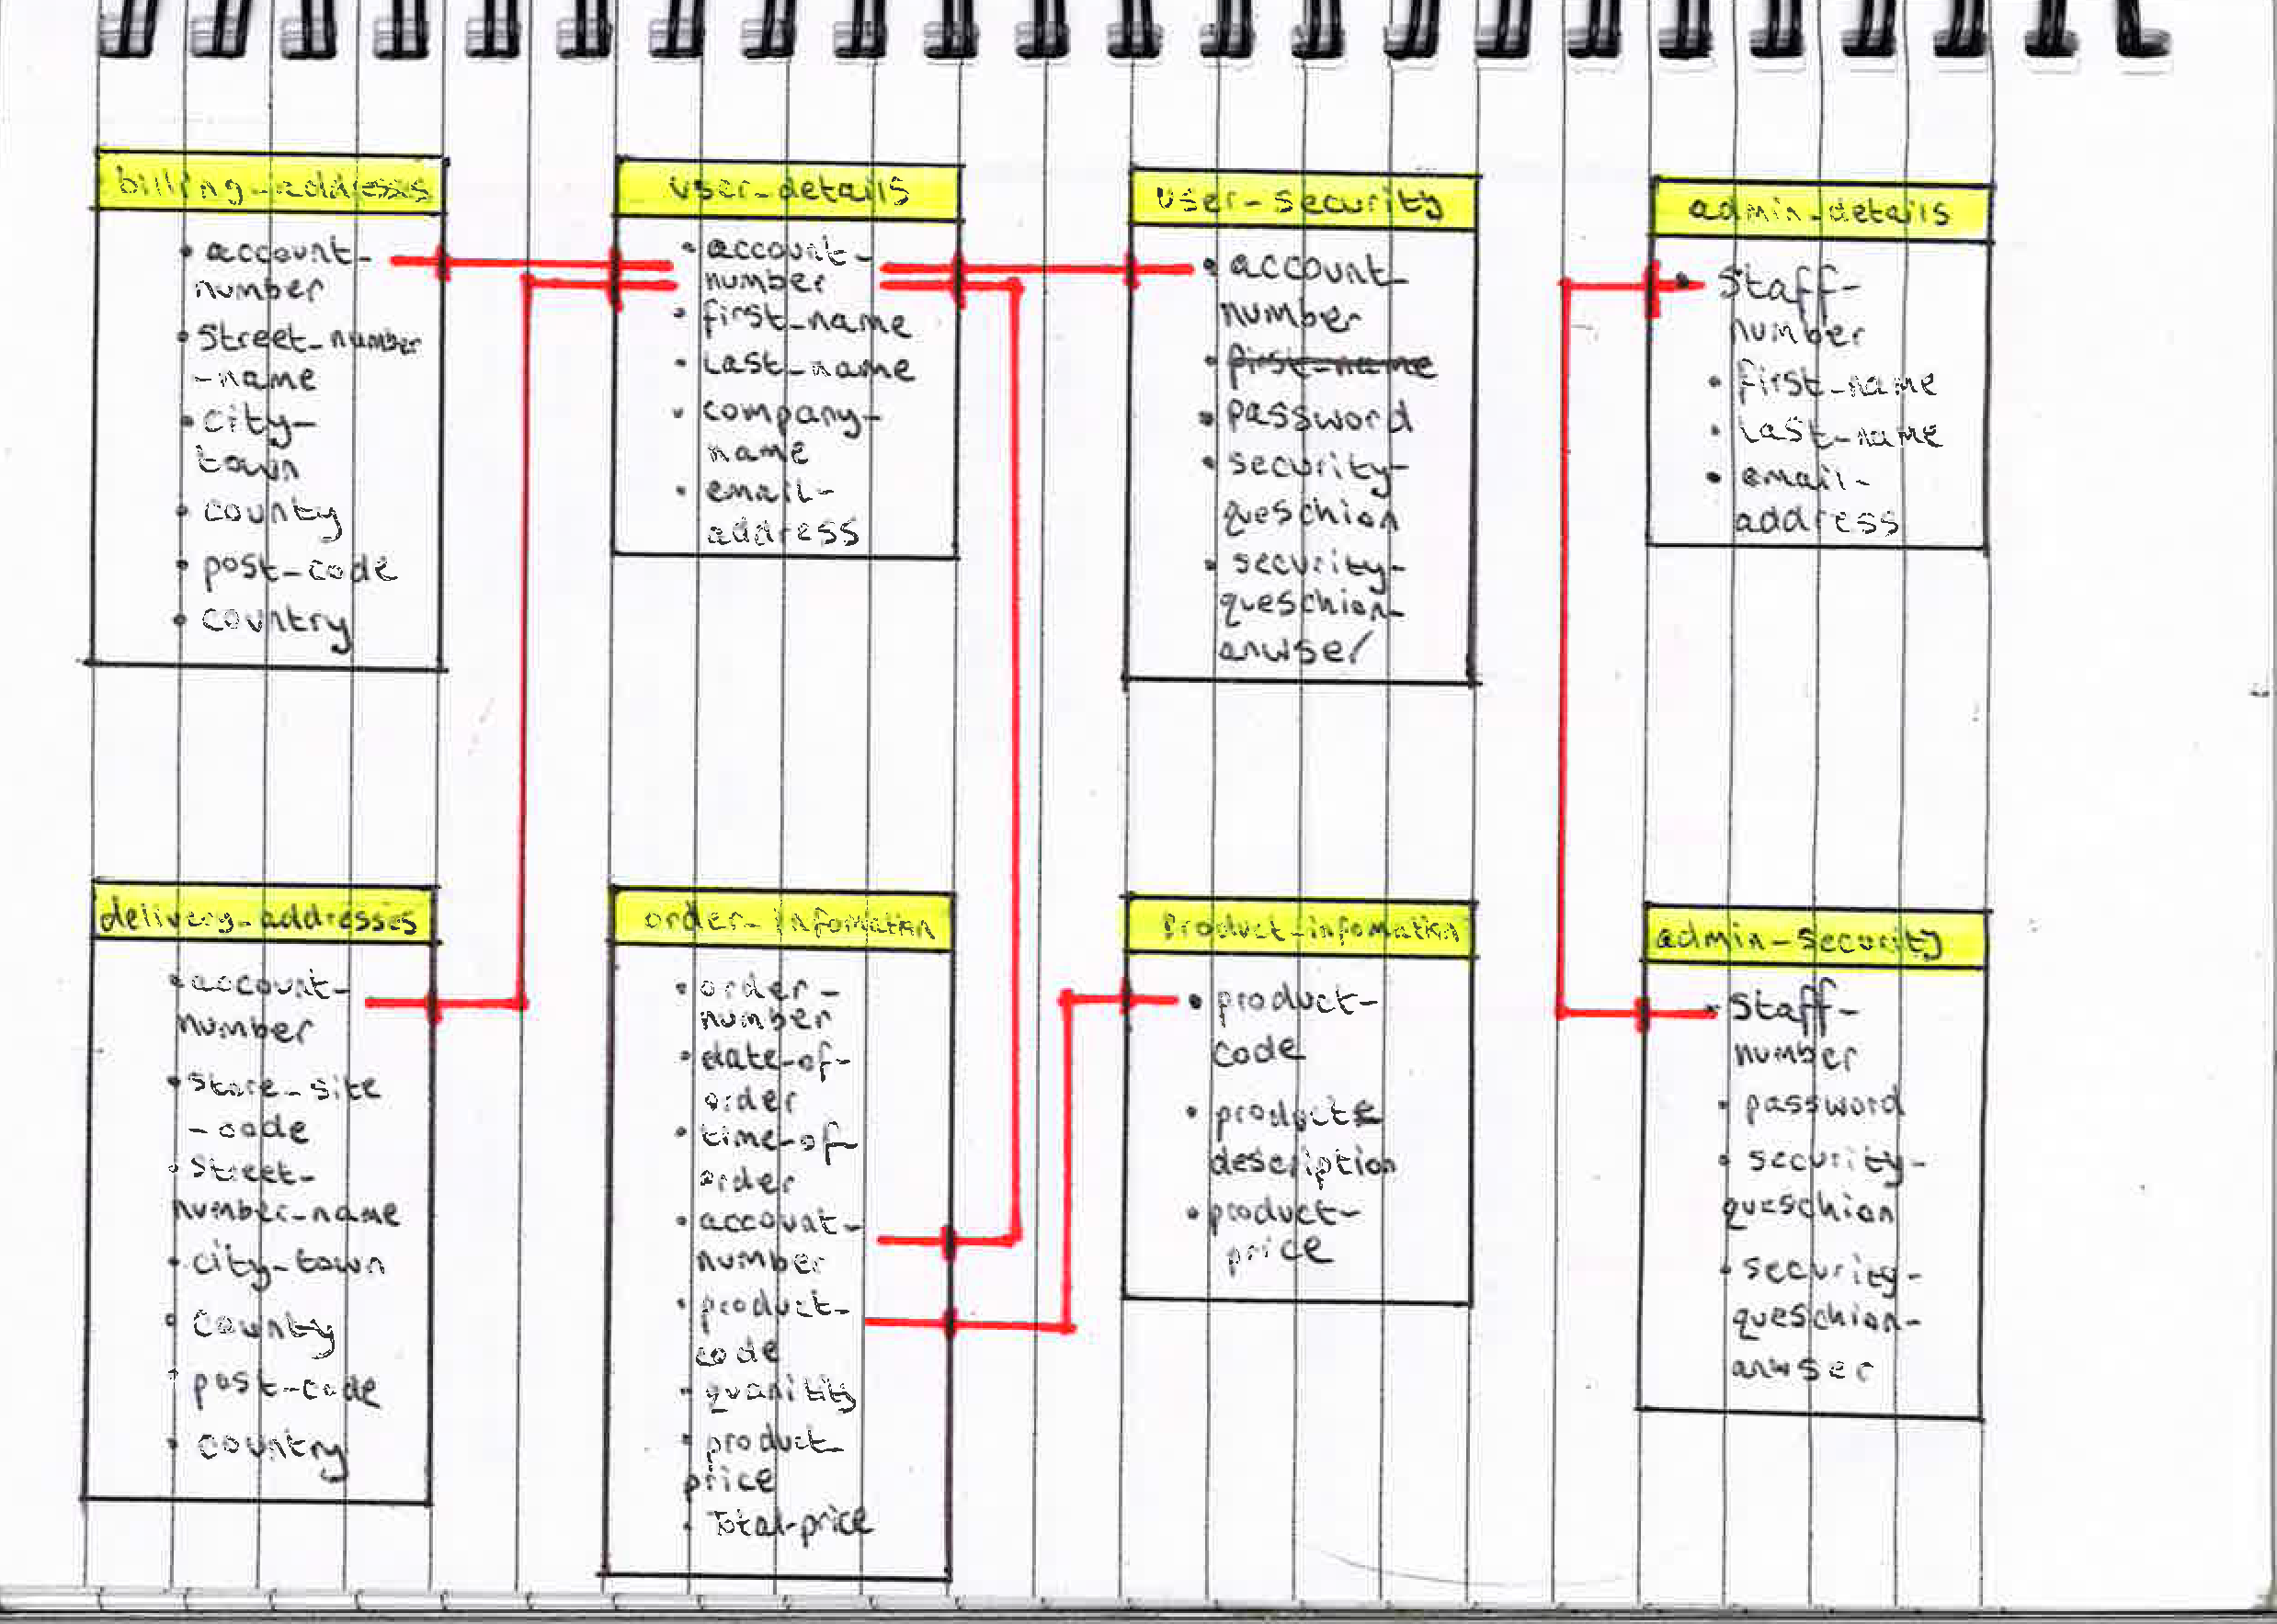 billing-addresses
• account-
number
• Street-number
-name
• City-
town
• county
• post-code
• country
user-details
• account-
number
• first-name
• Last-name
• company-
name
• email-
address
user-security
• account-
number
• first-name
• password
• security-
queschion
• security-
queschion-
anwser
admin-details
• Staff-
number
• first-name
• Last-name
• email-
address
delivery-addresses
• account-
number
• Store-site
-code
• Street-
number-name
• city-town
• County
• post-code
• country
order-infomation
• order-
number
• date-of-
order
• time-of-
order
• account-
number
• product-
code
• quanitity
• product
price
• Total-price
Product-infomation
• product-
code
• product
description
• product-
price
admin-security
• Staff-
number
• password
• security-
queschion
• security-
queschion-
anwser